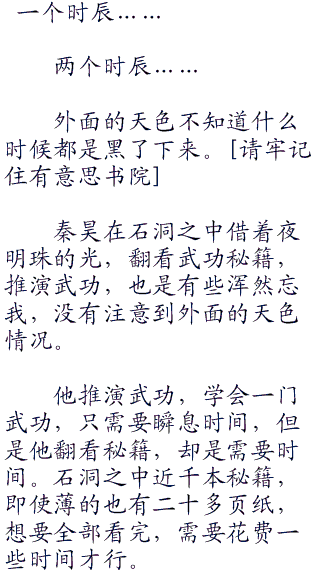 一个时辰……
两个时辰……
外面的天色不知道什么
时候都是黑了下来。[请牢记
住有意思书院]
秦昊在石洞之中借着夜
明珠的光，翻看武功秘籍，
推演武功，也是有些浑然忘
我，没有注意到外面的天色
情况。
他推演武功，学会一门
武功，只需要瞬息时间，但
是他翻看秘籍，却是需要时
间。石洞之中近千本秘籍，
即使薄的也有二十多页纸，
想要全部看完，需要花费一
些时间才行。